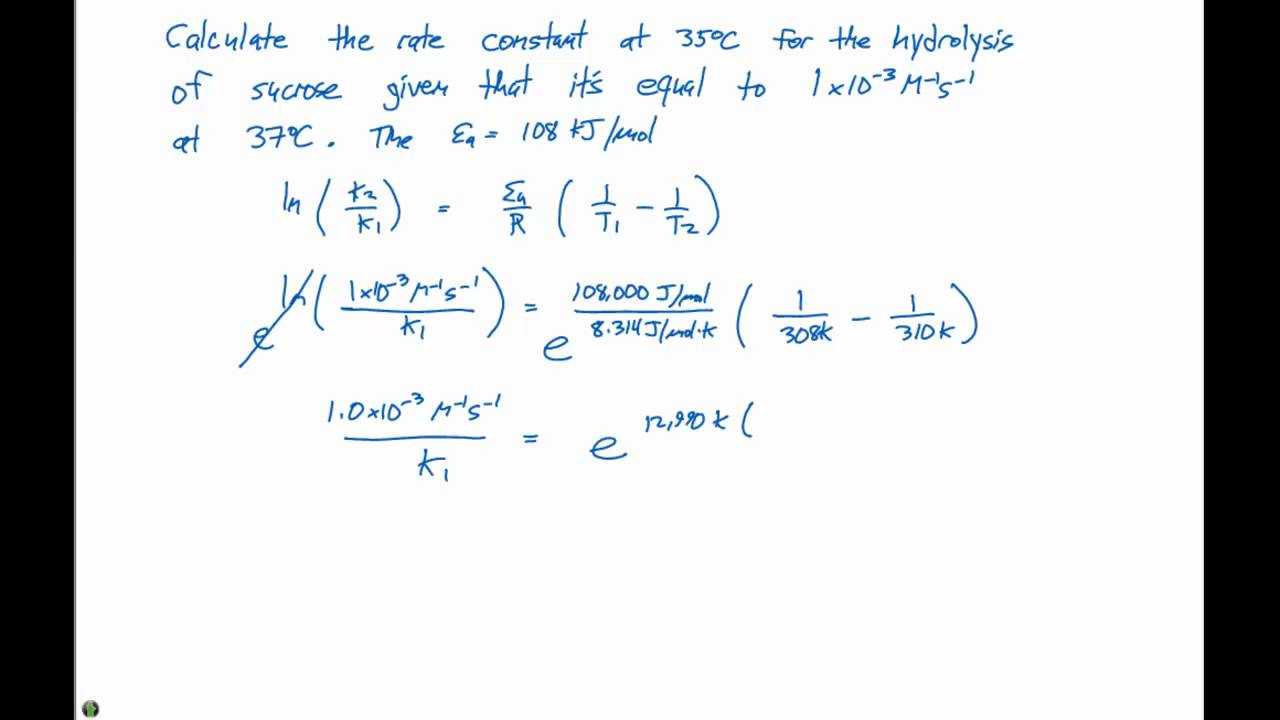 Calculate the rate constant at 35°C for the hydrolysis
of sucrose given that it's equal to 1×10⁻³ M⁻¹s⁻¹
at 37°C. The Ea = 108 kJ/mol
ln (k₂/k₁) = Ea/R (1/T₁ − 1/T₂)
e ln (1×10⁻³ M⁻¹s⁻¹ / k₁) = e 108,000 J/mol / 8.314 J/mol·k (1/308k − 1/310k)
1.0×10⁻³ M⁻¹s⁻¹ / k₁ = e 12,990 k (